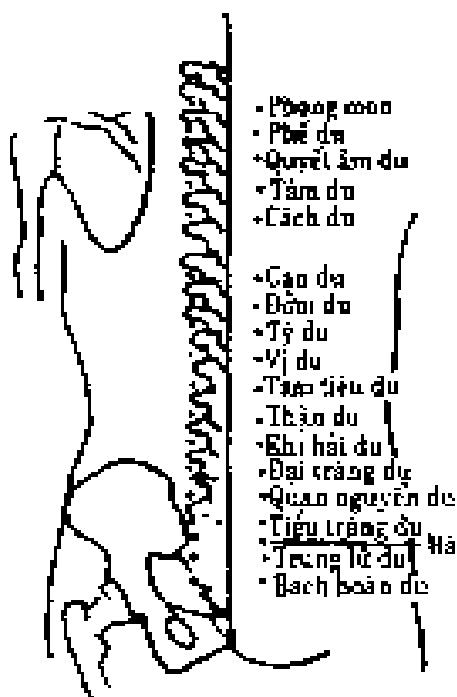 Phong môn
Phế du
Quyết âm du
Tâm du
Cách du
Can du
Đởm du
Tỳ du
Vị du
Tam tiêu du
Thận du
Khí hải du
Đại tràng du
Quan nguyên du
Tiểu tràng du
Trung lữ du
Bạch hoàn du